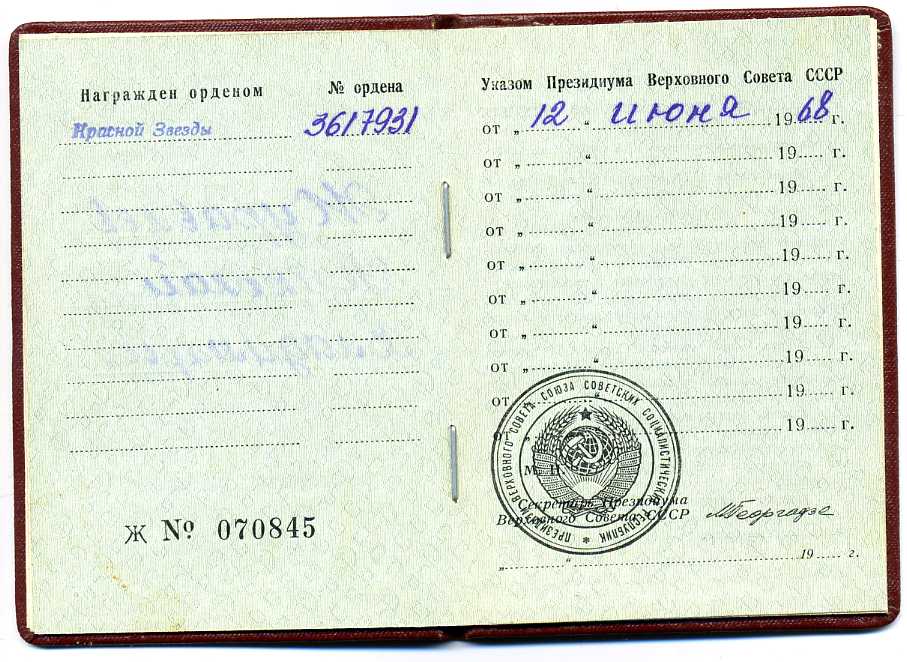 Награжден орденом № ордена
Красной Звезды 3617931
Ж № 070845
Указом Президиума Верховного Совета СССР
от „ 12 “ июня 1968 г.
от „ “ 19 г.
от „ “ 19 г.
от „ “ 19 г.
от „ “ 19 г.
от „ “ 19 г.
от „ “ 19 г.
от „ “ 19 г.
от „ “ 19 г.
от „ “ 19 г.
ПРЕЗИДИУМ ВЕРХОВНОГО СОВЕТА СОЮЗА СОВЕТСКИХ СОЦИАЛИСТИЧЕСКИХ РЕСПУБЛИК
М. П.
Секретарь Президиума
Верховного Совета СССР МГеоргадзе
„ “ 19 г.